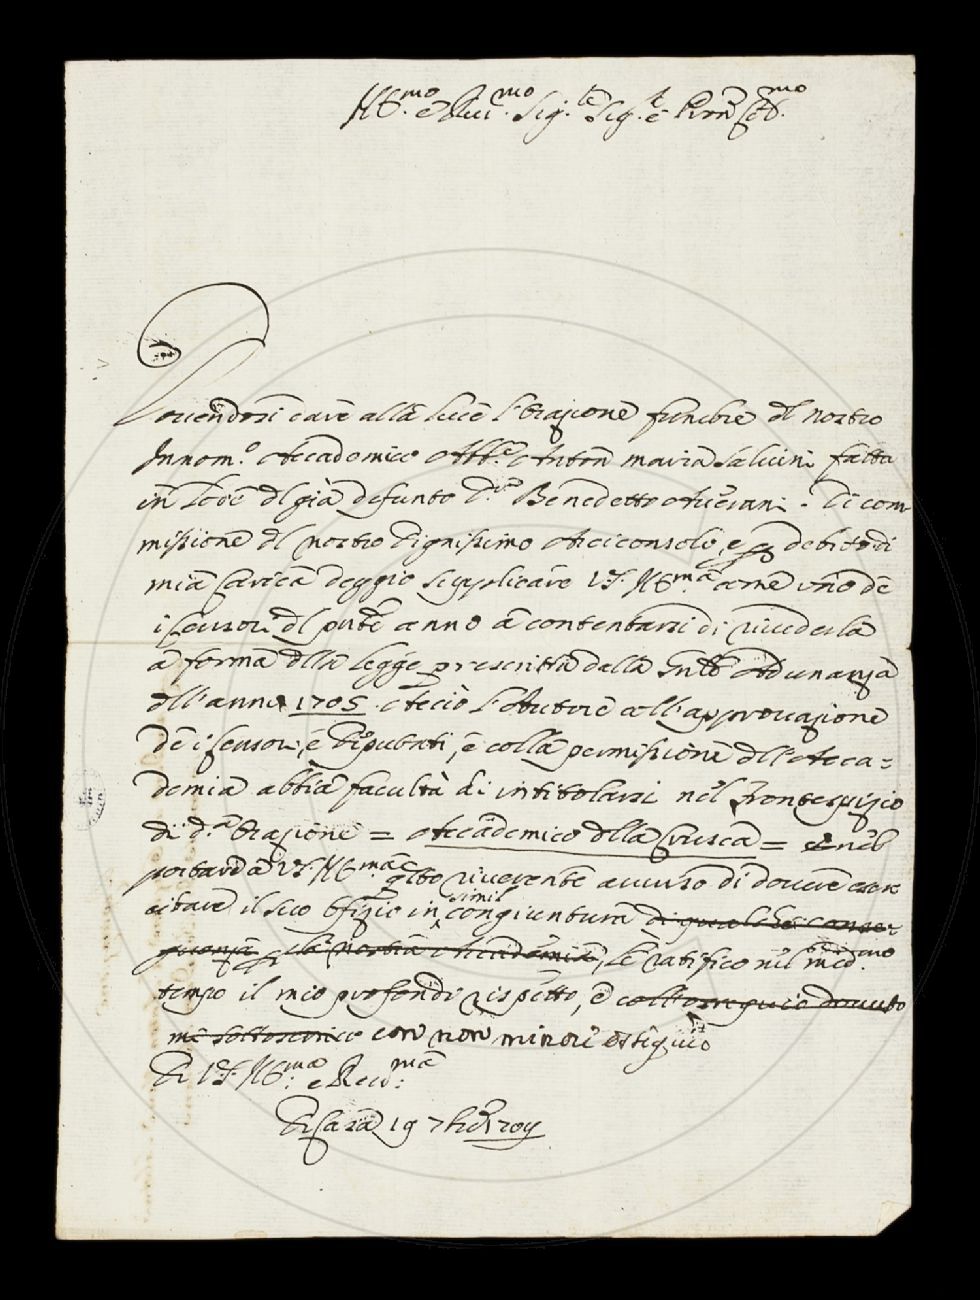 Ill.mo e Rev.mo Sig.re Sig.e e Pron Col.mo
Dovendosi dare alla luce l'Orazione funebre del nostro
Innom.o Accademico Abb.e Anton maria Salvini fatta
in lode del già defunto D.re Benedetto Averani. Di com
missione del nostro dignissimo Arciconsolo, e p debito di
mia carica deggio supplicare V.S. Ill.ma come uno de
i Censori del pnte anno a contentarsi di rivederla
a forma della legge prescritta della Adunanza
dell'anno 1705. Acciò l'Autore coll'approvazione
de i Censori, e Diputati, e colla permissione dell'Acca=
demia abbia facultà di intitolarsi nel Frontespizio
di d.a Orazione = Accademico della Crusca = e nel
portarda V.S. Ill.ma qsto riverente avviso di dovere eser
citare il suo ofizio in simil congiuntura di qualche conse=
guenza p la nostra Accademia, le ratifico nel med.mo
tempo il mio profondo rispetto, e coll'ossequio dovuto
mi sottoscrivo con non minore ossequio
Di V.S. Ill.ma e Rev.ma
Di Casa 19 7bre 1709